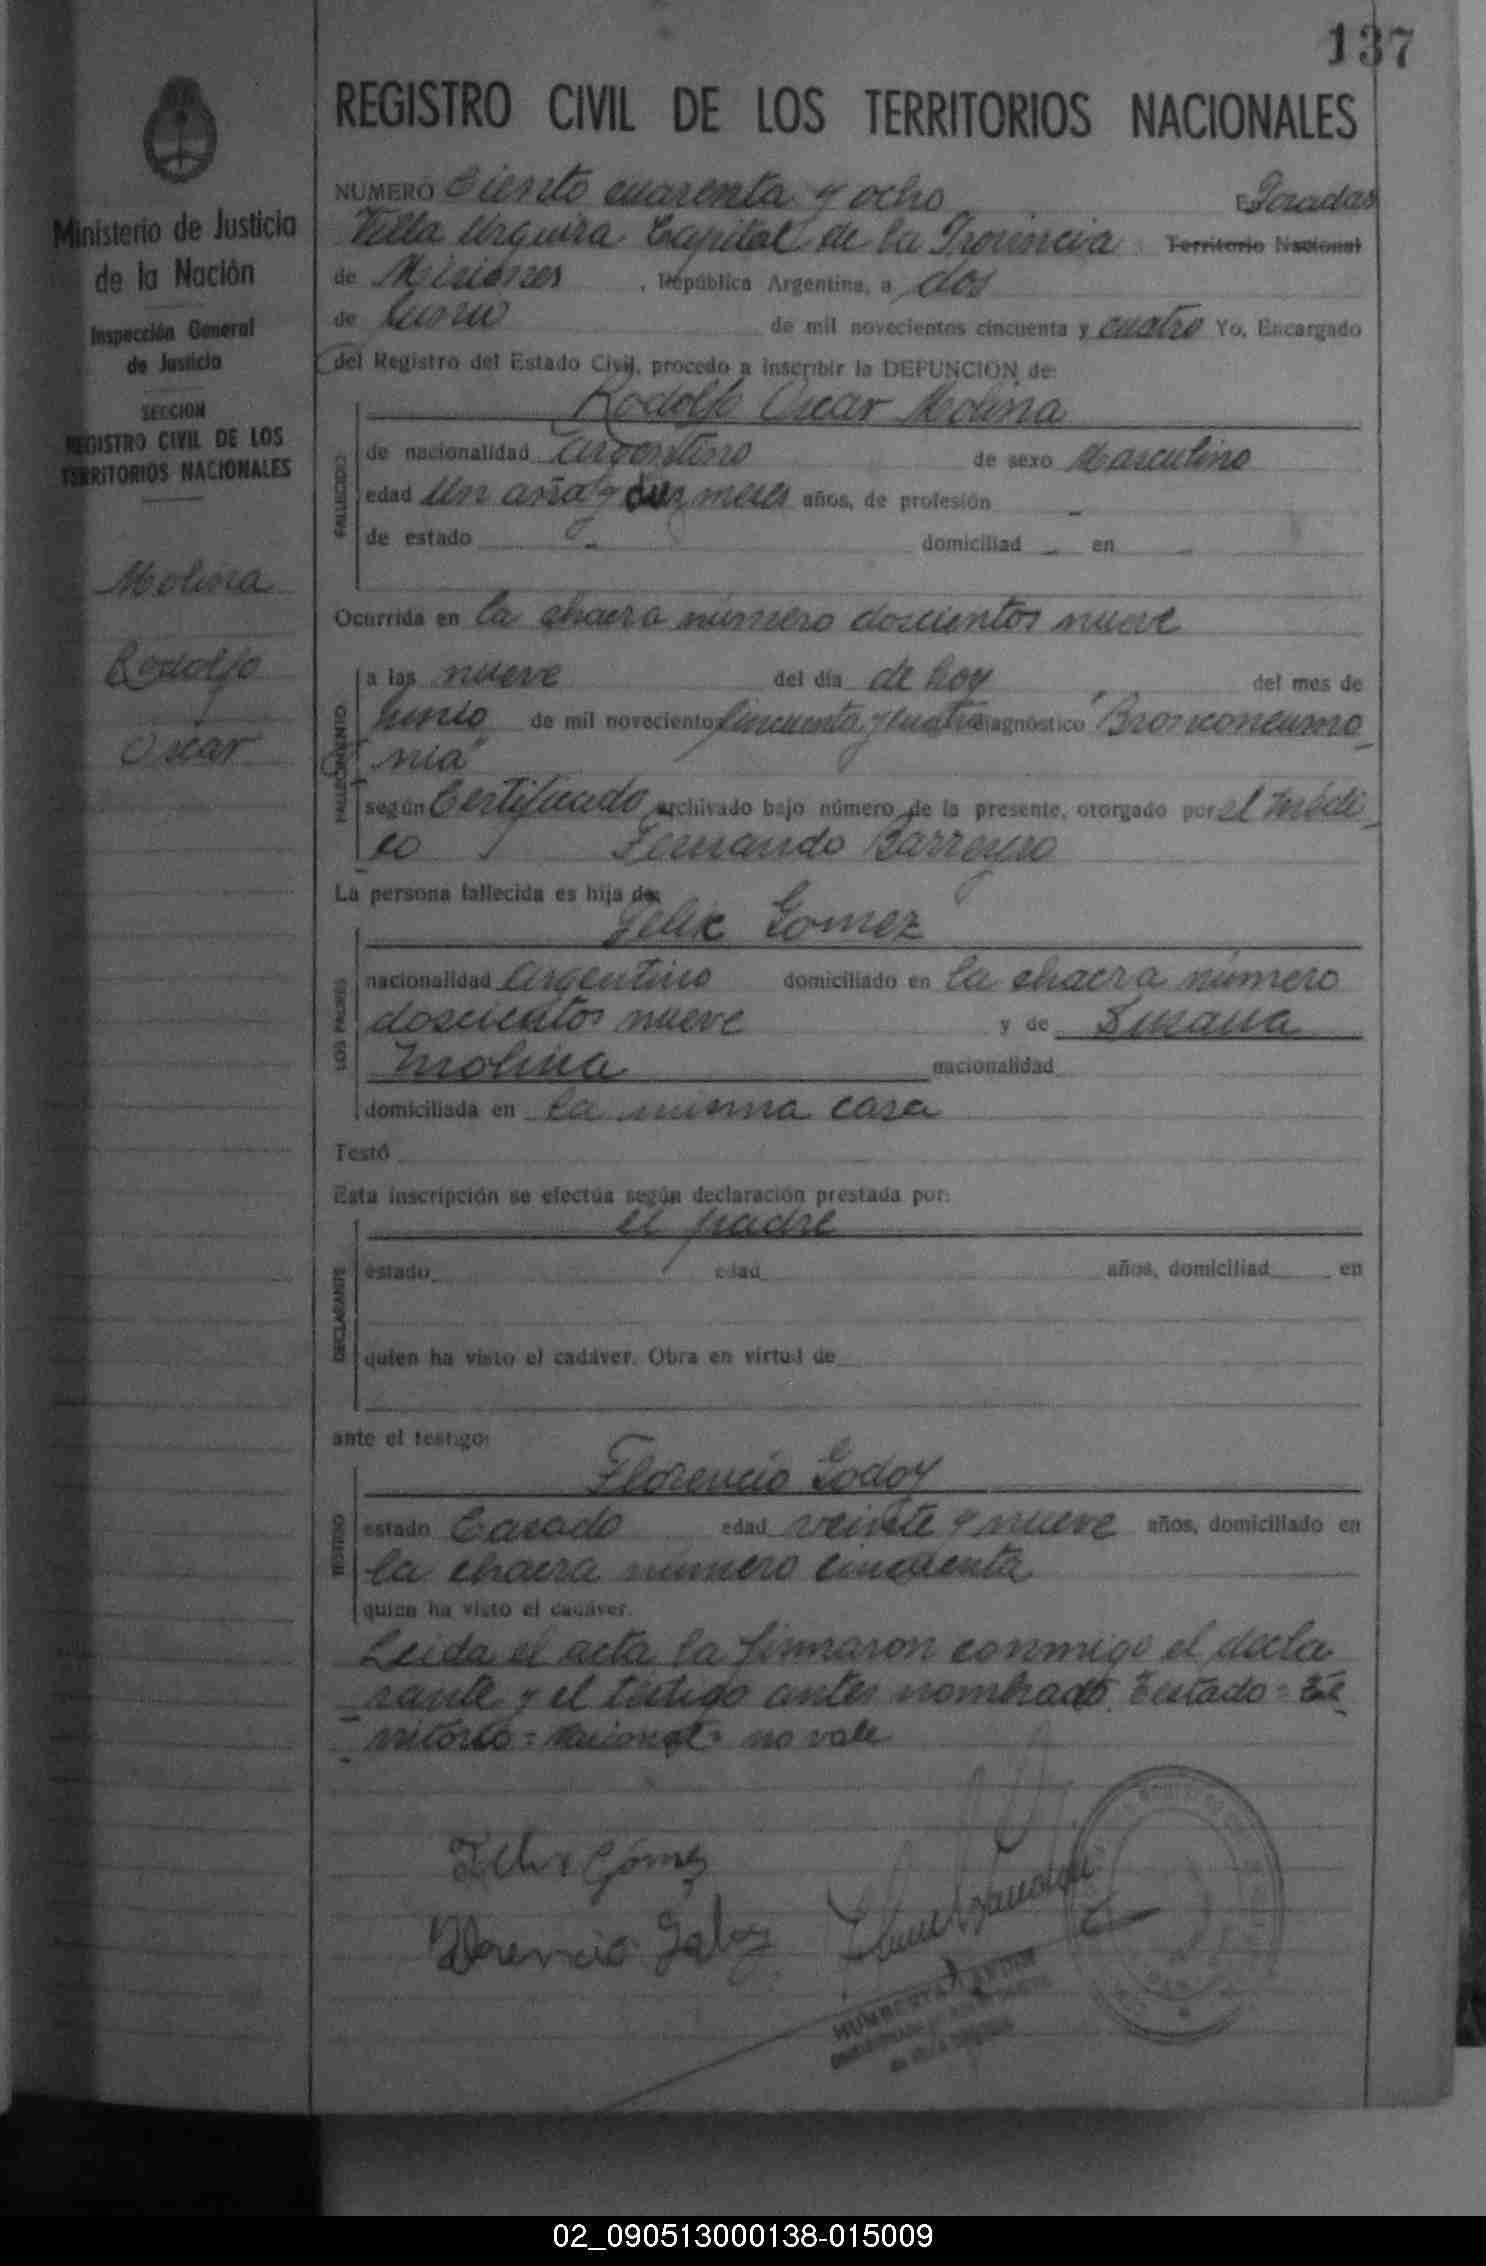 137
REGISTRO CIVIL DE LOS TERRITORIOS NACIONALES
Ministerio de Justicia
de la Nación
Inspección General
de Justicia
SECCION
REGISTRO CIVIL DE LOS
TERRITORIOS NACIONALES
Molina
Rodolfo
Oscar
NUMERO Ciento cuarenta y ocho E Posadas
Villa Urquiza Capital de la Provincia Territorio Nacional
de Misiones, República Argentina, a dos
de Junio de mil novecientos cincuenta y cuatro Yo, Encargado
del Registro del Estado Civil, procedo a inscribir la DEFUNCION de:
Rodolfo Oscar Molina
FALLECIDO
de nacionalidad argentino de sexo Masculino
edad Un año y diez meses años, de profesión -
de estado - domiciliad - en -
Ocurrida en la chacra número doscientos nueve
FALLECIMIENTO
a las nueve del día de hoy del mes de
Junio de mil novecientos cincuenta y cuatro diagnóstico "Bronconeumo
nia"
según Certificado archivado bajo número de la presente, otorgado por el Médi
co Fernando Barreyro
La persona fallecida es hija de:
Felix Gomez
LOS PADRES
nacionalidad argentino domiciliado en la chacra número
doscientos nueve y de Susana
Molina nacionalidad
domiciliada en la misma casa
Testó
Esta inscripción se efectúa según declaración prestada por:
el padre
DECLARANTE
estado edad años, domiciliad en
quien ha visto el cadáver. Obra en virtud de
ante el testigo:
Florencio Godoy
TESTIGO
estado Casado edad veinte y nueve años, domiciliado en
la chacra número cincuenta
quien ha visto el cadáver.
Leida el acta la firmaron conmigo el decla
rante y el testigo antes nombrado. Testado = Te
rritorio = Nacional = no vale
Felix Gómez
Florencio
02_090513000138-015009